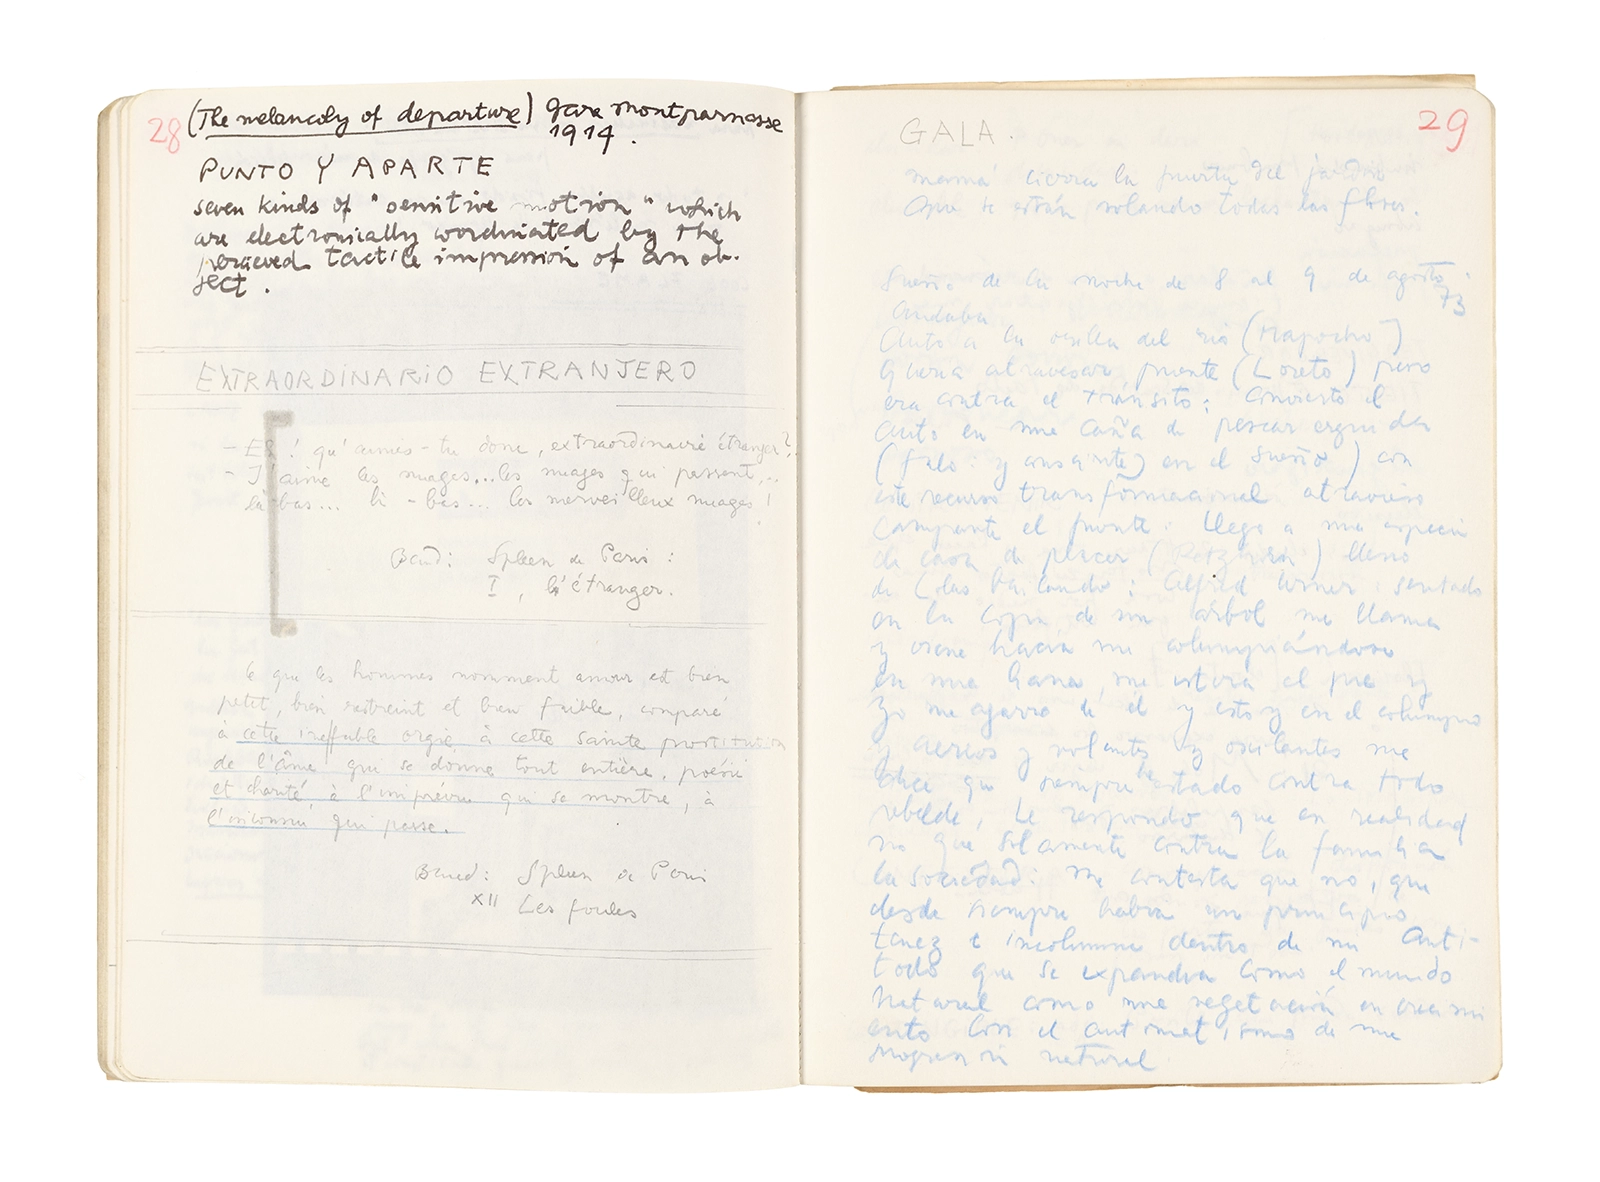 28 (The melancoly of departure) Gare Montparnasse
1914.
PUNTO Y APARTE
seven kinds of "sensitive motion" which
are electronically coordinated by the
percieved tactile impression of an ob-
ject.
EXTRAORDINARIO EXTRANJERO
- Eh! qu'aimes-tu donc, extraordinaire étranger?
- J'aime les nuages...les nuages qui passent...
là-bas... là-bas... les merveilleux nuages!
Baud: Spleen de Paris:
I, L'étranger.
Ce que les hommes nomment amour est bien
petit, bien restreint et bien faible, comparé
à cette ineffable orgie, à cette sainte prostitution
de l'âme qui se donne tout entière, poésie
et charité, à l'imprévu qui se montre, à
l'inconnu qui passe.
Baud: Spleen de Paris
XII Les foules
29
GALA.
mamá cierra la puerta del jardín
que te están volando todas las flores.
Sueño de la noche de 8 al 9 de agosto
73
Andaba
Auto a la orilla del río (Mapocho)
Quería atravesar puente (Loreto) pero
era contra el tránsito: Convierto el
auto en una caña de pescar erguida
(falo: y consciente) en el sueño) con
este recurso transformacional atravieso
campante el puente. Llego a una especie
de casa de placer () lleno
de Lolas bailando: Alfred sentado
en la copa de un árbol me llama
y viene hacia mí columpiándose
en una liana, me estira el pie y
yo me agarro de él y estoy en el columpio
y aereos y volantes y oscilantes me
dice que siempre he estado contra todo
rebelde, le respondo que en realidad
no que solamente contra la familia
la sociedad: me contesta que no, que
desde siempre había un principio
tenez e incolumne dentro de mi Anti-
todo que se expandia como el mundo
natural como una vegetación en crecimi
ento con el automatismo de una
progresión natural